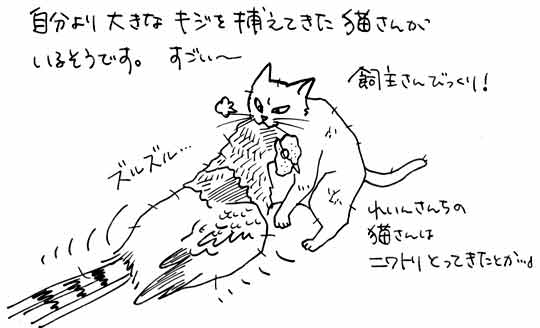 自分より大きなキジを捕えてきた猫さんが
いるそうです。 すごい〜
飼主さんびっくり!
ズルズル…
れいんさんちの
猫さんは
ニワトリとってきたとか…。